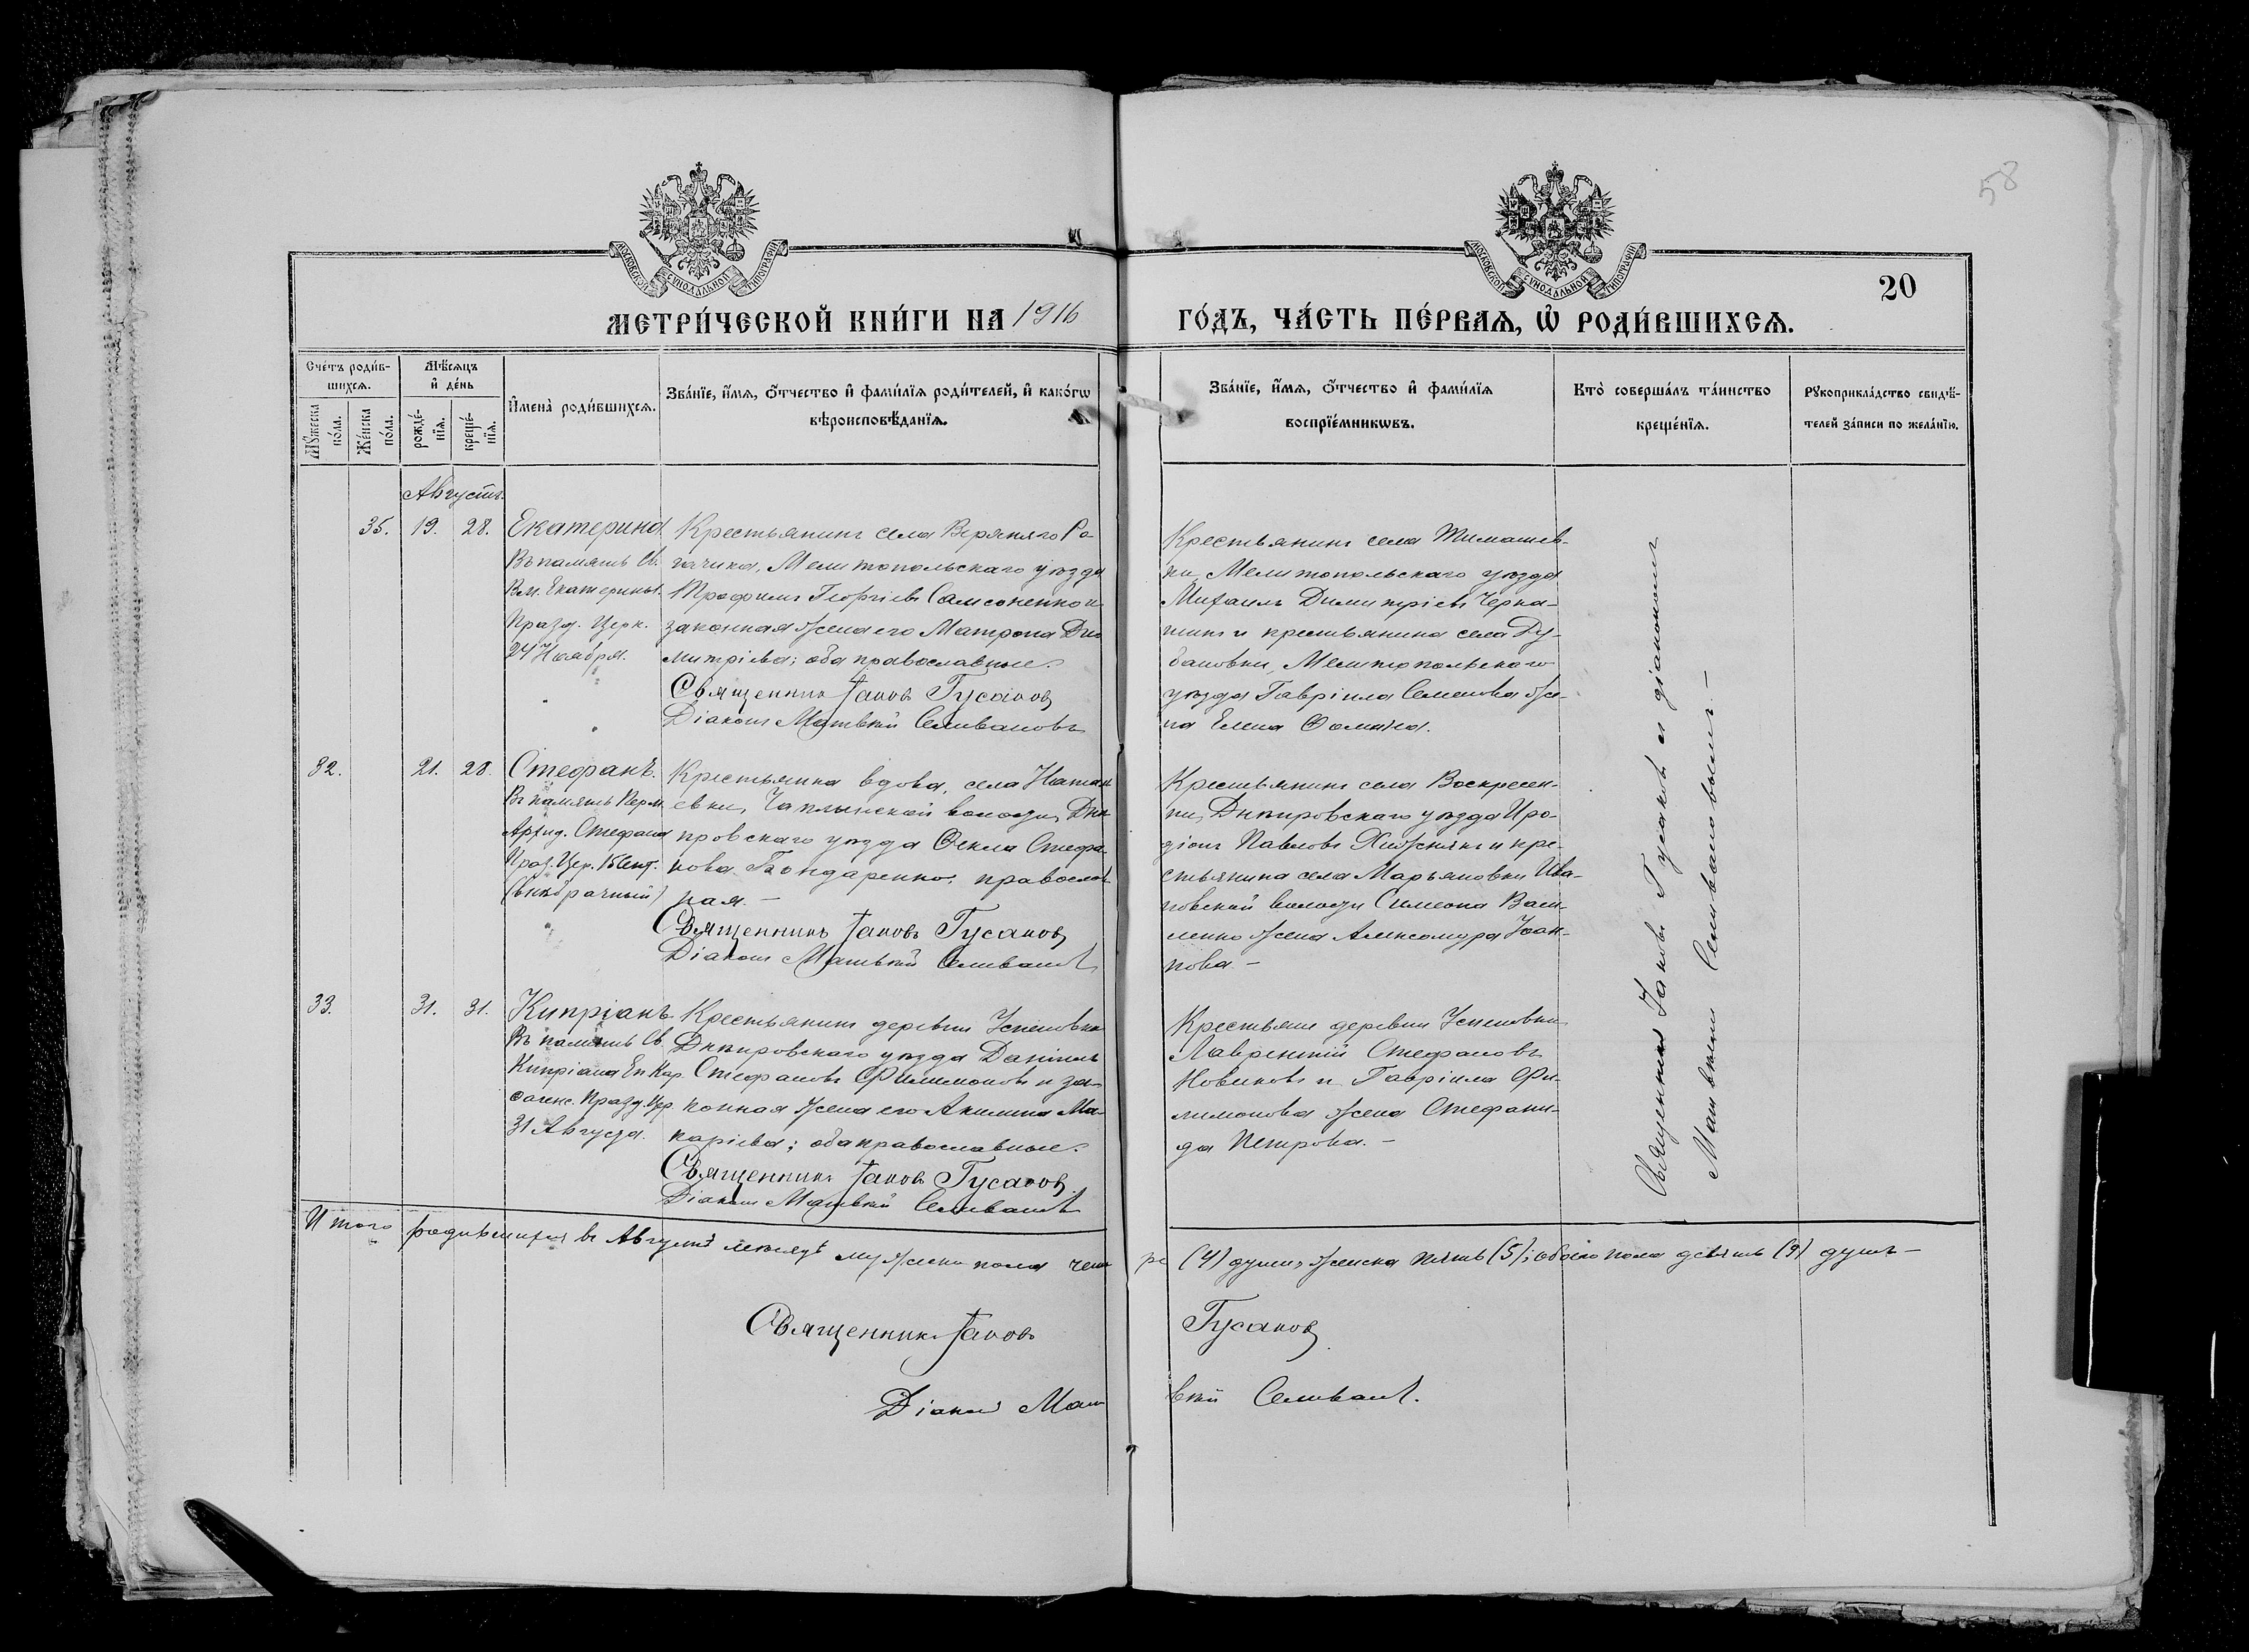 58
МОСКОВСКОЙ СУНОДАЛЬНОЙ ТИПОГРАФИИ
МОСКОВСКОЙ СУНОДАЛЬНОЙ ТИПОГРАФИИ
20
МЕТРИ́ЧЕСКОЙ КНИ́ГИ НА 1916 ГО́ДЪ, ЧА́СТЬ ПЕ́РВАѦ, Ѡ҆ РОДИ́ВШИХСѦ.
Сче́тъ роди́в-
шихсѧ.
Мꙋ́жеска
по́ла.
Же́нска
по́ла.
Мѣ́сѧцъ
и҆ де́нь
рожде́-
нїѧ.
креще́-
нїѧ.
И҆мена̀ роди́вшихсѧ.
Зва́нїе, и҆́мѧ, ѻ҆́тчество и҆ фами́лїѧ роди́телей, и҆ како́гѡ
вѣроисповѣ́данїѧ.
Зва́нїе, и҆́мѧ, ѻ҆́тчество и҆ фами́лїѧ
воспрїе́мникѡвъ.
Кто̀ соверша́лъ та́инство
креще́нїѧ.
Рꙋкоприкла́дство свидѣ́-
телей за́писи по жела́нїю.
Августъ.
35. 19. 28. Екатерина
Въ память Св.
Вм. Екатерины.
Празд. Церк.
24 Ноября.
Крестьянинъ села Верхняго Ро-
гачика, Мелитопольскаго уѣзда
Трофимъ Георгіевъ Самсоненко и
законная жена его Матрона Ди-
митріева; оба православные.
Священникъ Іаковъ Гусаковъ
Діаконъ Матвѣй Селивановъ
Крестьянинъ села Тимашев-
ки, Мелитопольскаго уѣзда
Михаилъ Димитріевъ
и крестьянина села
Мелитопольскаго
уѣзда Гавріила Семенова же-
на Елена
32. 21. 28. Стефанъ.
Въ память Перв.
Архид. Стефана
Праз. Цер. 15 Сент.
(внѣбрачный)
Крестьянка вдова, села
Чаплынской волости, Днѣ-
провскаго уѣзда Ѳекла Стефа-
нова Бондаренко, православ-
ная. —
Священникъ Іаковъ Гусаковъ
Діаконъ Матвѣй Селивановъ
Крестьянинъ села Воскресен-
ки, Днѣпровскаго уѣзда Иро-
діонъ Павловъ и кре-
стьянина села Марьяновки Ива-
новской волости Симеона Васи-
ленко жена Александра Іоан-
нова. —
33. 31. 31. Кипріанъ
Въ память Св.
Кипріана Еп. Кар.
Празд. Цер.
31 Августа.
Крестьянинъ деревни Успеновки
Днѣпровскаго уѣзда Даніилъ
Стефановъ Филимоновъ и за-
конная жена его Акилина Ма-
каріева; оба православные.
Священникъ Іаковъ Гусаковъ
Діаконъ Матвѣй Селивановъ
Крестьяне деревни Успеновки
Лаврентій Стефановъ
Новиковъ и Гавріила Фи-
лимонова жена Стефани-
да Петрова. —
Священникъ Іаковъ Гусаковъ и діакономъ
Матвѣемъ Селивановымъ —
Итого родившихся въ Августѣ мѣсяцѣ мужеска пола четы ре (4) души, женска пять (5); обоего пола девять (9) душъ —
Священникъ Іаковъ Гусаковъ
Діаконъ Мат вѣй Селивановъ.